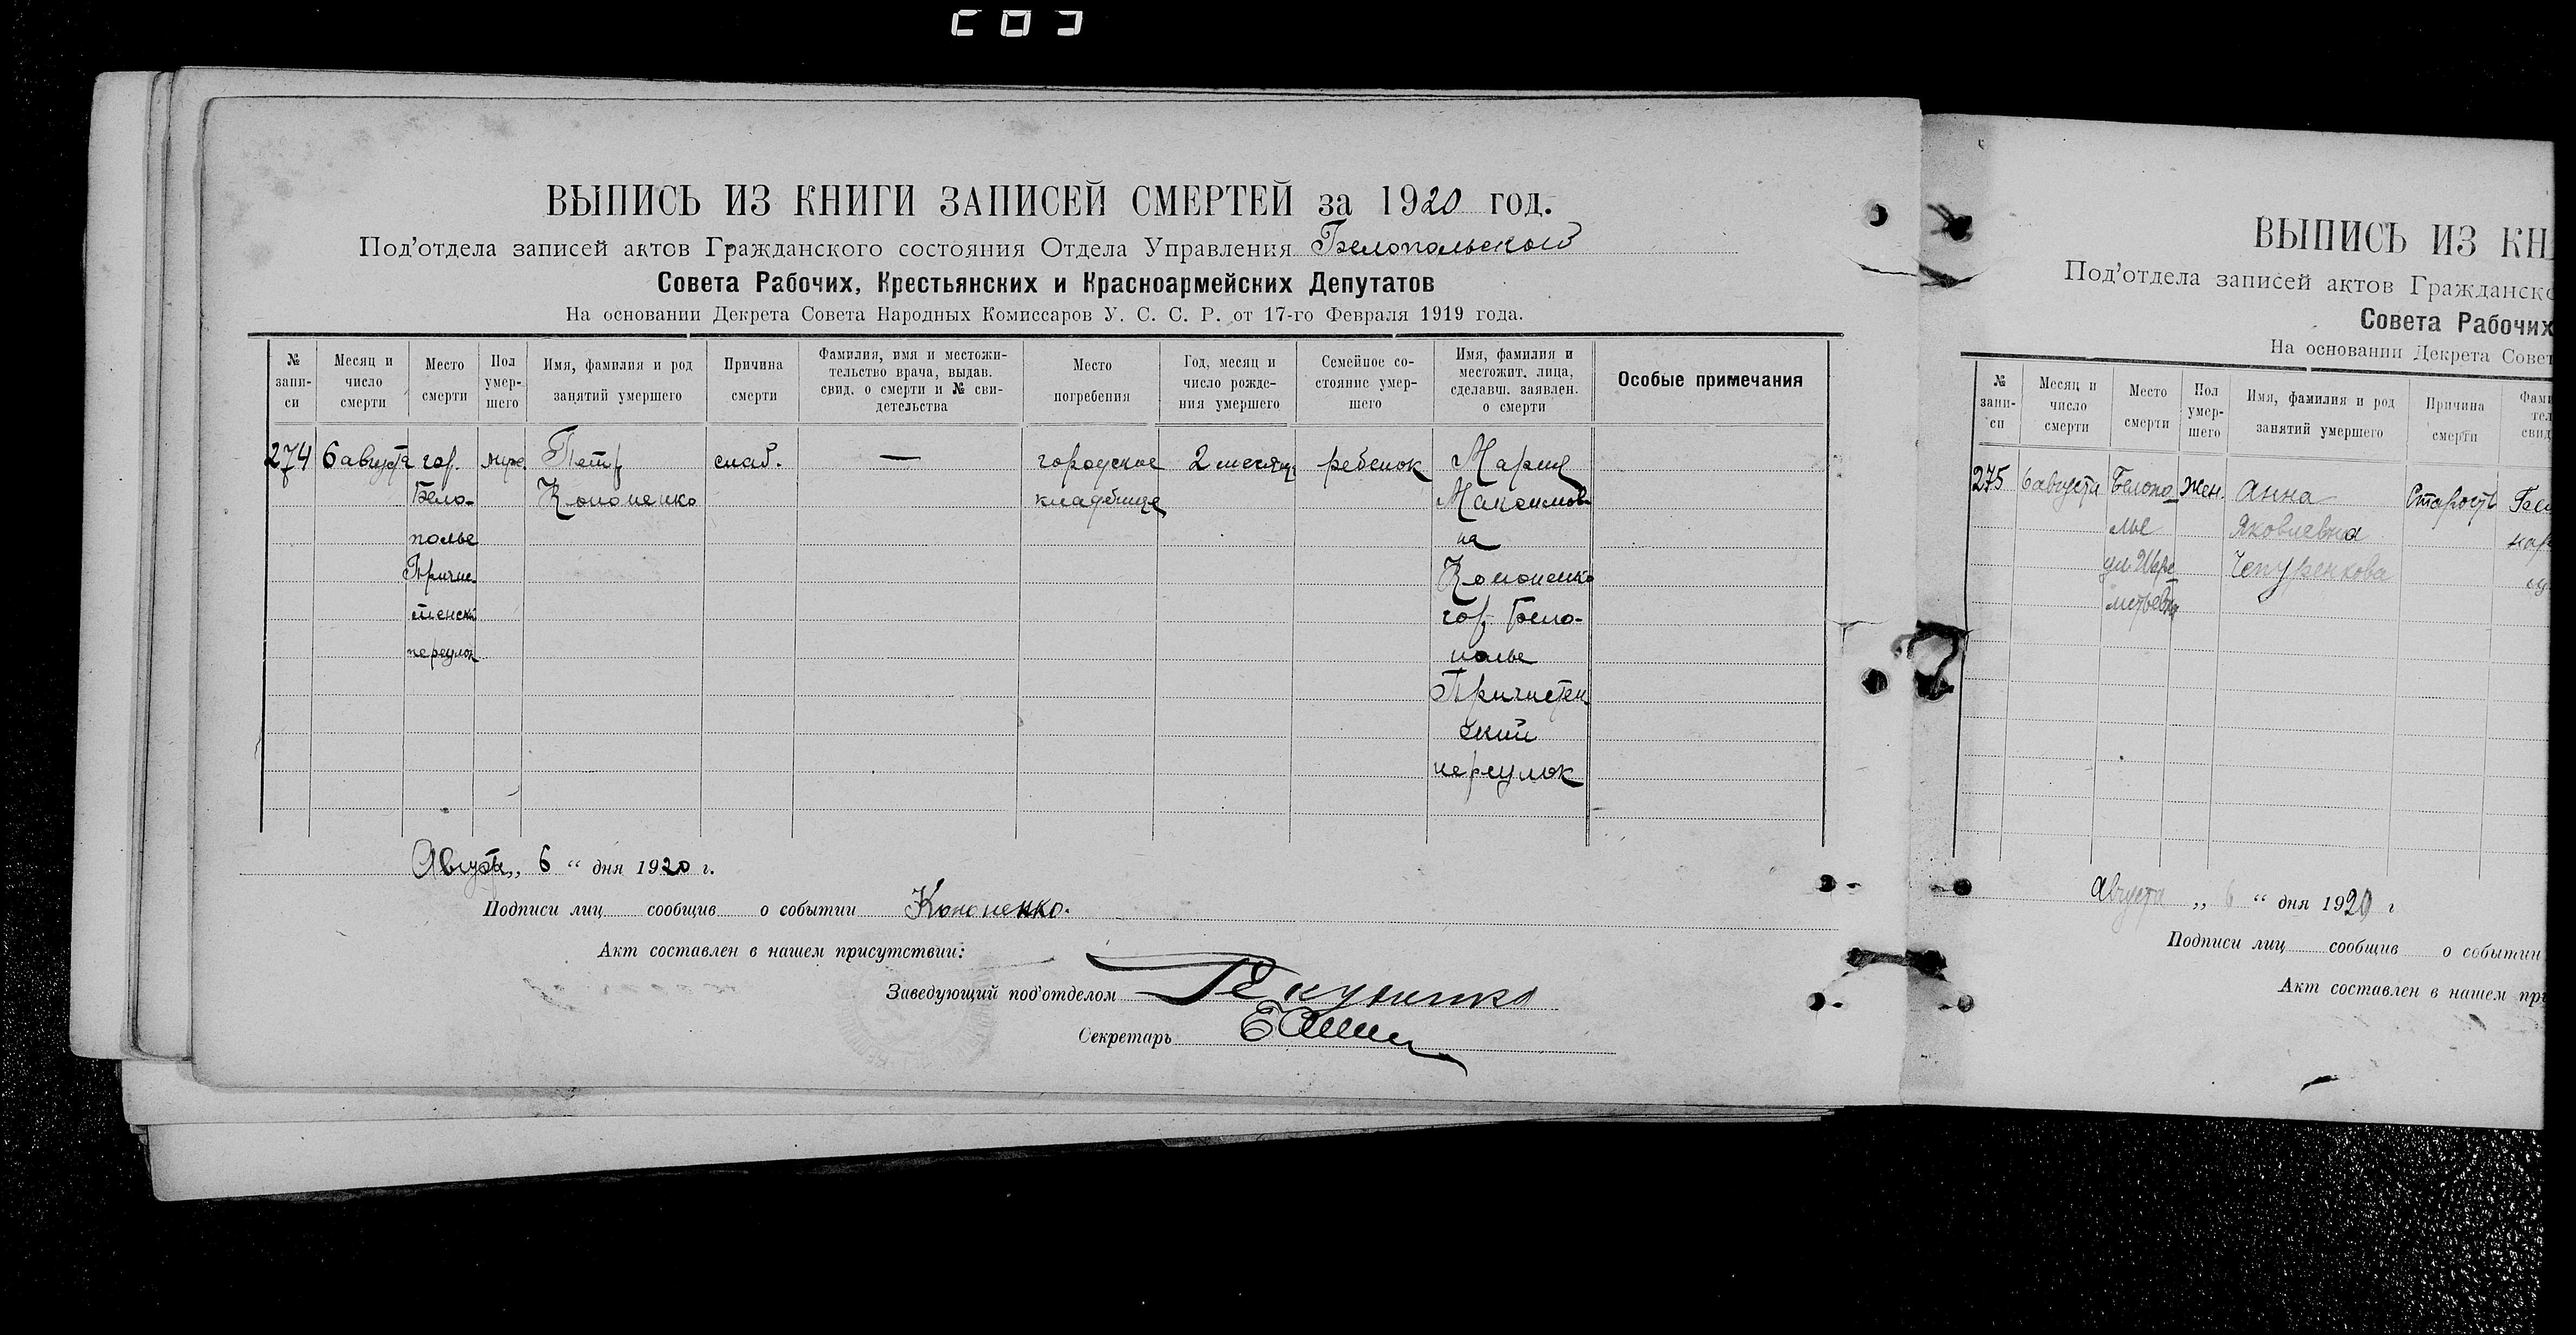 ВЫПИСЬ ИЗ КНИГИ ЗАПИСЕЙ СМЕРТЕЙ за 1920 год.
Под'отдела записей актов Гражданского состояния Отдела Управления Белопольского
Совета Рабочих, Крестьянских и Красноармейских Депутатов
На основании Декрета Совета Народных Комиссаров У. С. С. Р. от 17-го Февраля 1919 года.
№ запи- си
Месяц и число смерти
Место смерти
Пол умер- шего
Имя, фамилия и род занятий умершего
Причина смерти
Фамилия, имя и местожи- тельство врача, выдав. свид. о смерти и № сви- детельства
Место погребения
Год, месяц и число рожде- ния умершего
Семейное со- стояние умер- шего
Имя, фамилия и местожит. лица, сделавш. заявлен. о смерти
Особые примечания
274 6 августа гор. Петр слаб. — городское 2 месяца ребенок Мария
Бело- Кононенко кладбище Максимов
полье на
Причис Кононенко
тенски гор. Бело-
переулок полье
Причистен
ский
переулок
Августа „ 6 “ дня 1920 г.
Подписи лиц сообщив о событии Кононенко.
Акт составлен в нашем присутствии:
Заведующий под'отделом
Секретарь
ВЫПИСЬ ИЗ КН
Под'отдела записей актов Гражданско
Совета Рабочих
На основании Декрета Совет
№ запи- си
Месяц и число смерти
Место смерти
Пол умер- шего
Имя, фамилия и род занятий умершего
Причина смерти
Фами тел свид
275 6 августа Белопо Жен. Анна Старость Бел
лье Яковлевна
ул. Шере Чепуренкова
метьевка
Августа „ 6 “ дня 1920 г
Подписи лиц сообщив о событии
Акт составлен в нашем пр